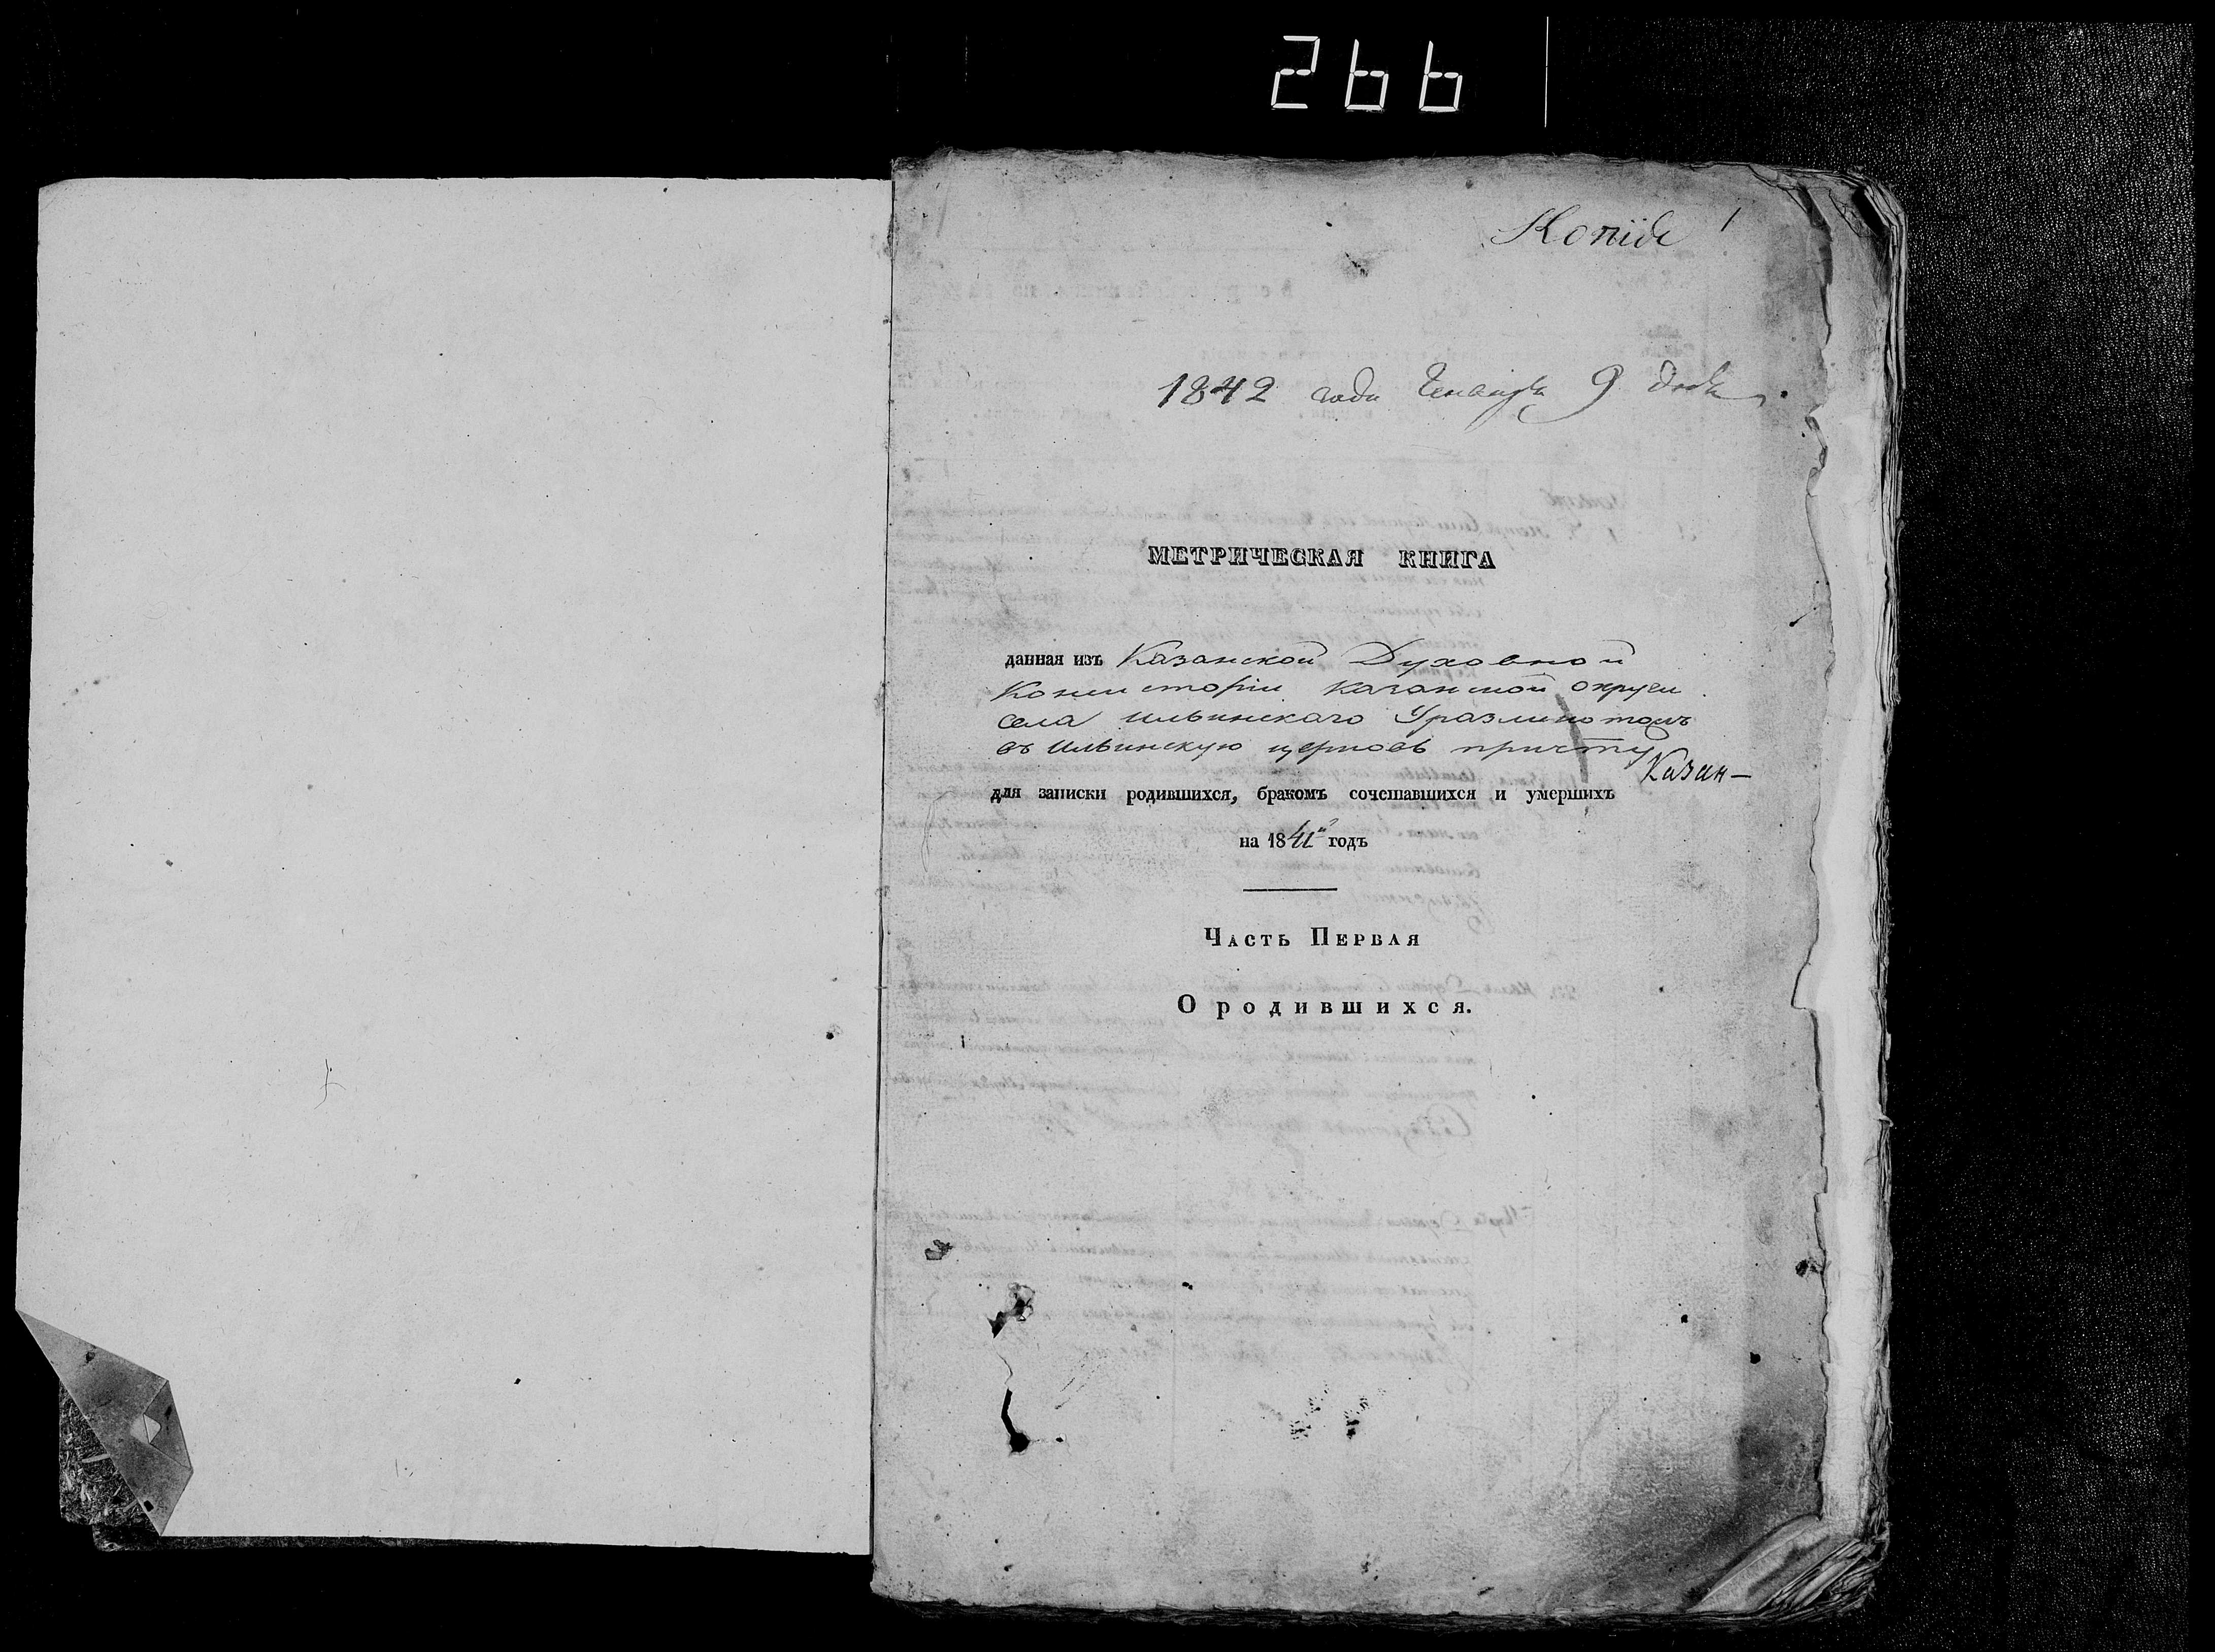 266
Копiя 1
1842 года Генваря 9 дня
МЕТРИЧЕСКАЯ КНИГА
данная изъ Казанской Духовной
Консисторiи Казанской округи
села Ильинскаго
въ Ильинскую церковь причту
Казан—
для записки родившихся, бракомъ сочетавшихся и умершихъ
на 1841й годъ
Часть Первая
О родившихся.